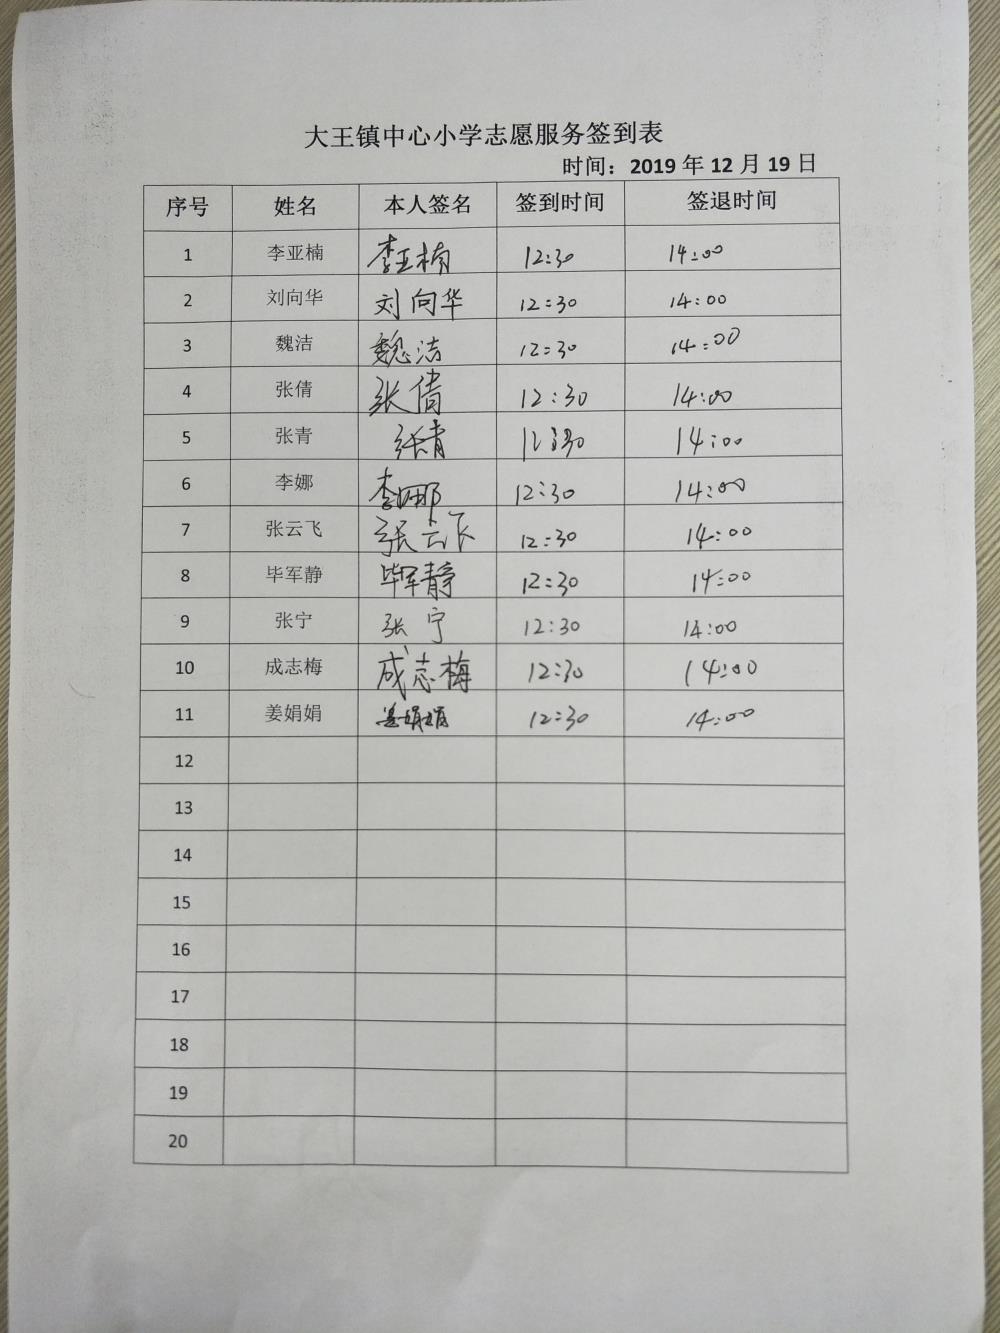 大王镇中心小学志愿服务签到表
时间：2019 年 12 月 19 日
序号 姓名 本人签名 签到时间 签退时间
1 李亚楠 李亚楠 12:30 14:00
2 刘向华 刘向华 12:30 14:00
3 魏洁 魏洁 12:30 14:00
4 张倩 张倩 12:30 14:00
5 张青 张青 12:30 14:00
6 李娜 李娜 12:30 14:00
7 张云飞 张云飞 12:30 14:00
8 毕军静 毕军静 12:30 14:00
9 张宁 张宁 12:30 14:00
10 成志梅 成志梅 12:30 14:00
11 姜娟娟 姜娟娟 12:30 14:00
12
13
14
15
16
17
18
19
20